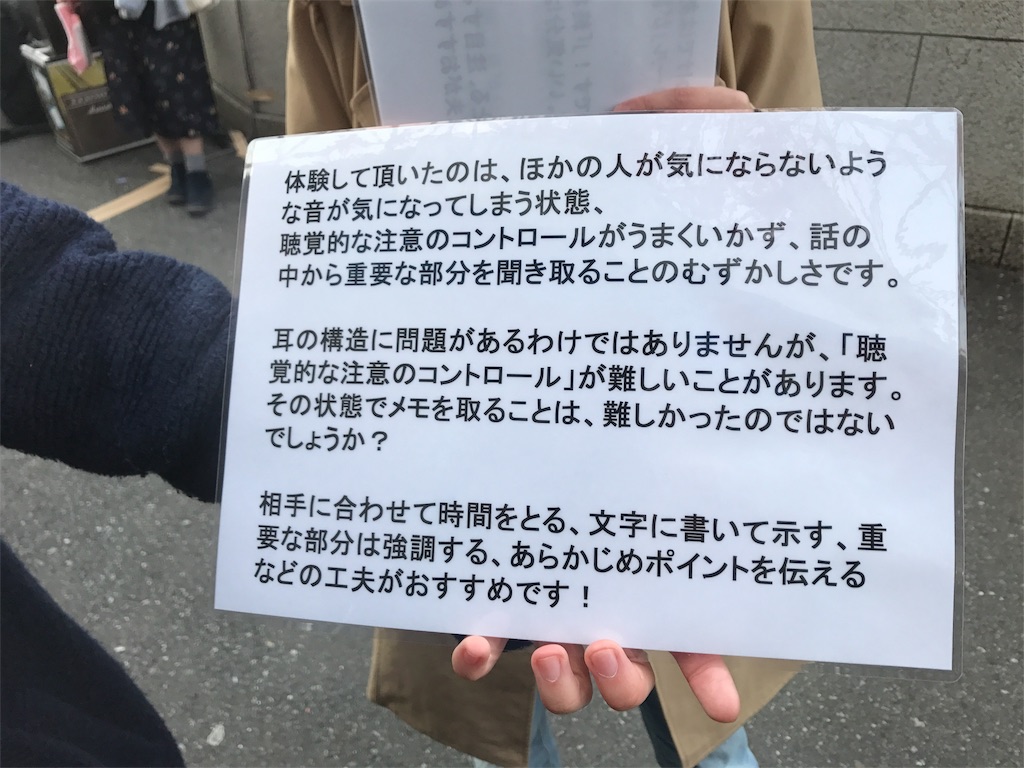 体験して頂いたのは、ほかの人が気にならないよう
な音が気になってしまう状態、
聴覚的な注意のコントロールがうまくいかず、話の
中から重要な部分を聞き取ることのむずかしさです。
耳の構造に問題があるわけではありませんが、「聴
覚的な注意のコントロール」が難しいことがあります。
その状態でメモを取ることは、難しかったのではない
でしょうか?
相手に合わせて時間をとる、文字に書いて示す、重
要な部分は強調する、あらかじめポイントを伝える
などの工夫がおすすめです!